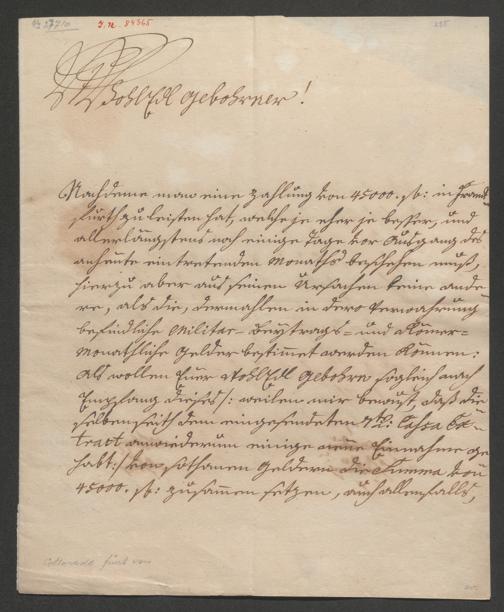 J.N. 84565
WohlEdl Gebohrner!
Nachdeme man eine Zahlung von 45000. fl: in Franck-
furth zu leisten hat, welche je eher je besser, und
allerlängstens noch einige Täge vor Ausgang des
anheute eintretenden Monaths beschehen muß,
hierzu aber aus seinen Ursachen keine ande-
re, als die, dermahlen in dero Verwahrung
befindliche Militar-Beytrags- und Römer-
Monathliche Gelder bestimmet werden können;
Als wollen Euer WohlEdl Gebohrn sogleich nach
Empfang dieses /: weilen mir bewust, daß die-
selben seith dem eingesendeten Cassa Ex-
tract anwiederum einige neue Einnahme ge-
habt :/ von sothanen Geldern die Summa von
45000. fl: zusammen setzen, auch allenfalls,
Colloredo Fürst von